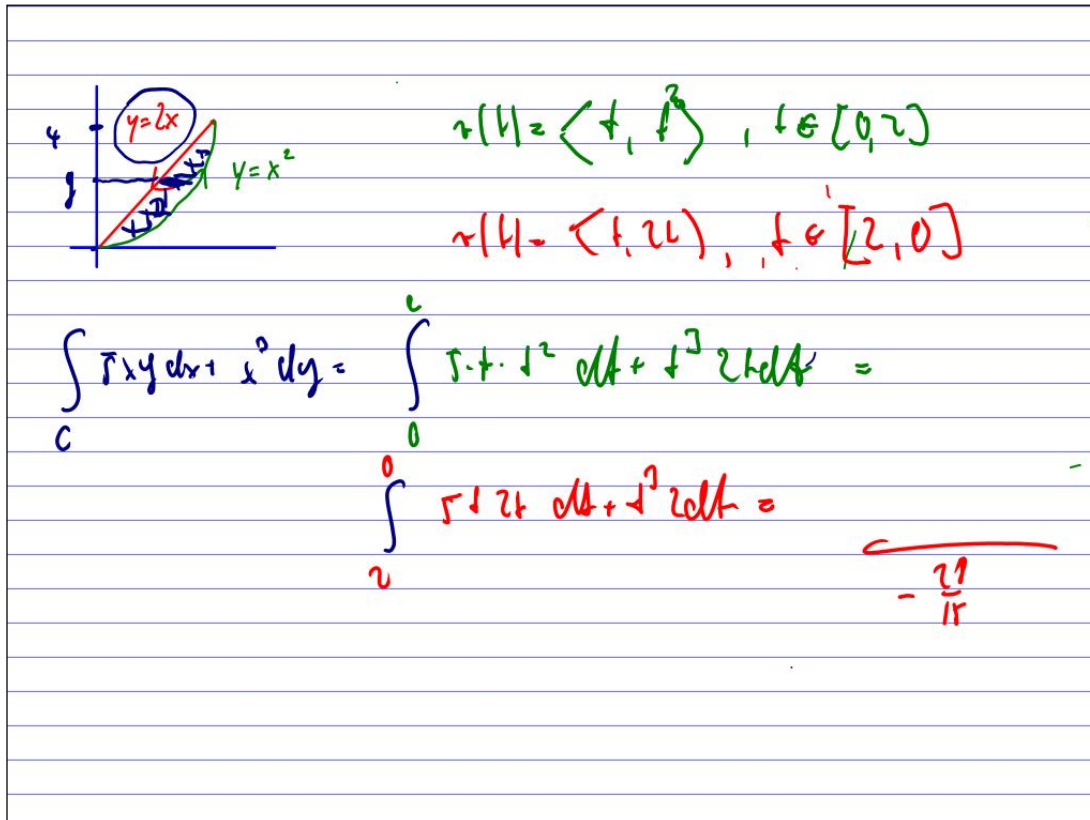 4
y=2x
y
y=x²
D
r(t)= ⟨t, t²⟩ , t∈[0,2]
r(t)= ⟨t, 2t⟩ , t∈[2,0]
∫_C 5xy dx + x³ dy = ∫_0^2 5·t·t² dt + t³ 2t dt =
∫_2^0 5t 2t dt + t³ 2dt =